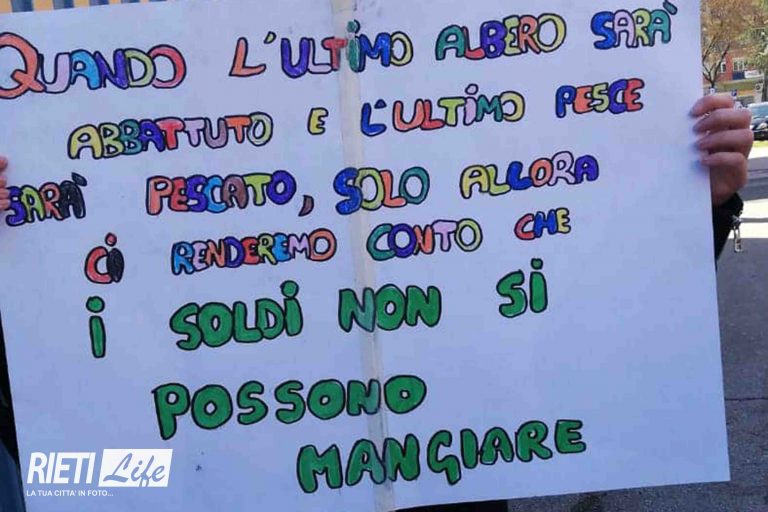 QUANDO L'ULTIMO ALBERO SARÀ
ABBATTUTO E L'ULTIMO PESCE
SARÀ PESCATO, SOLO ALLORA
Ci RENDEREMO CONTO CHE
i SOLDi NON Si
POSSONO
MANGiARE
RIETI Life
LA TUA CITTA' IN FOTO...